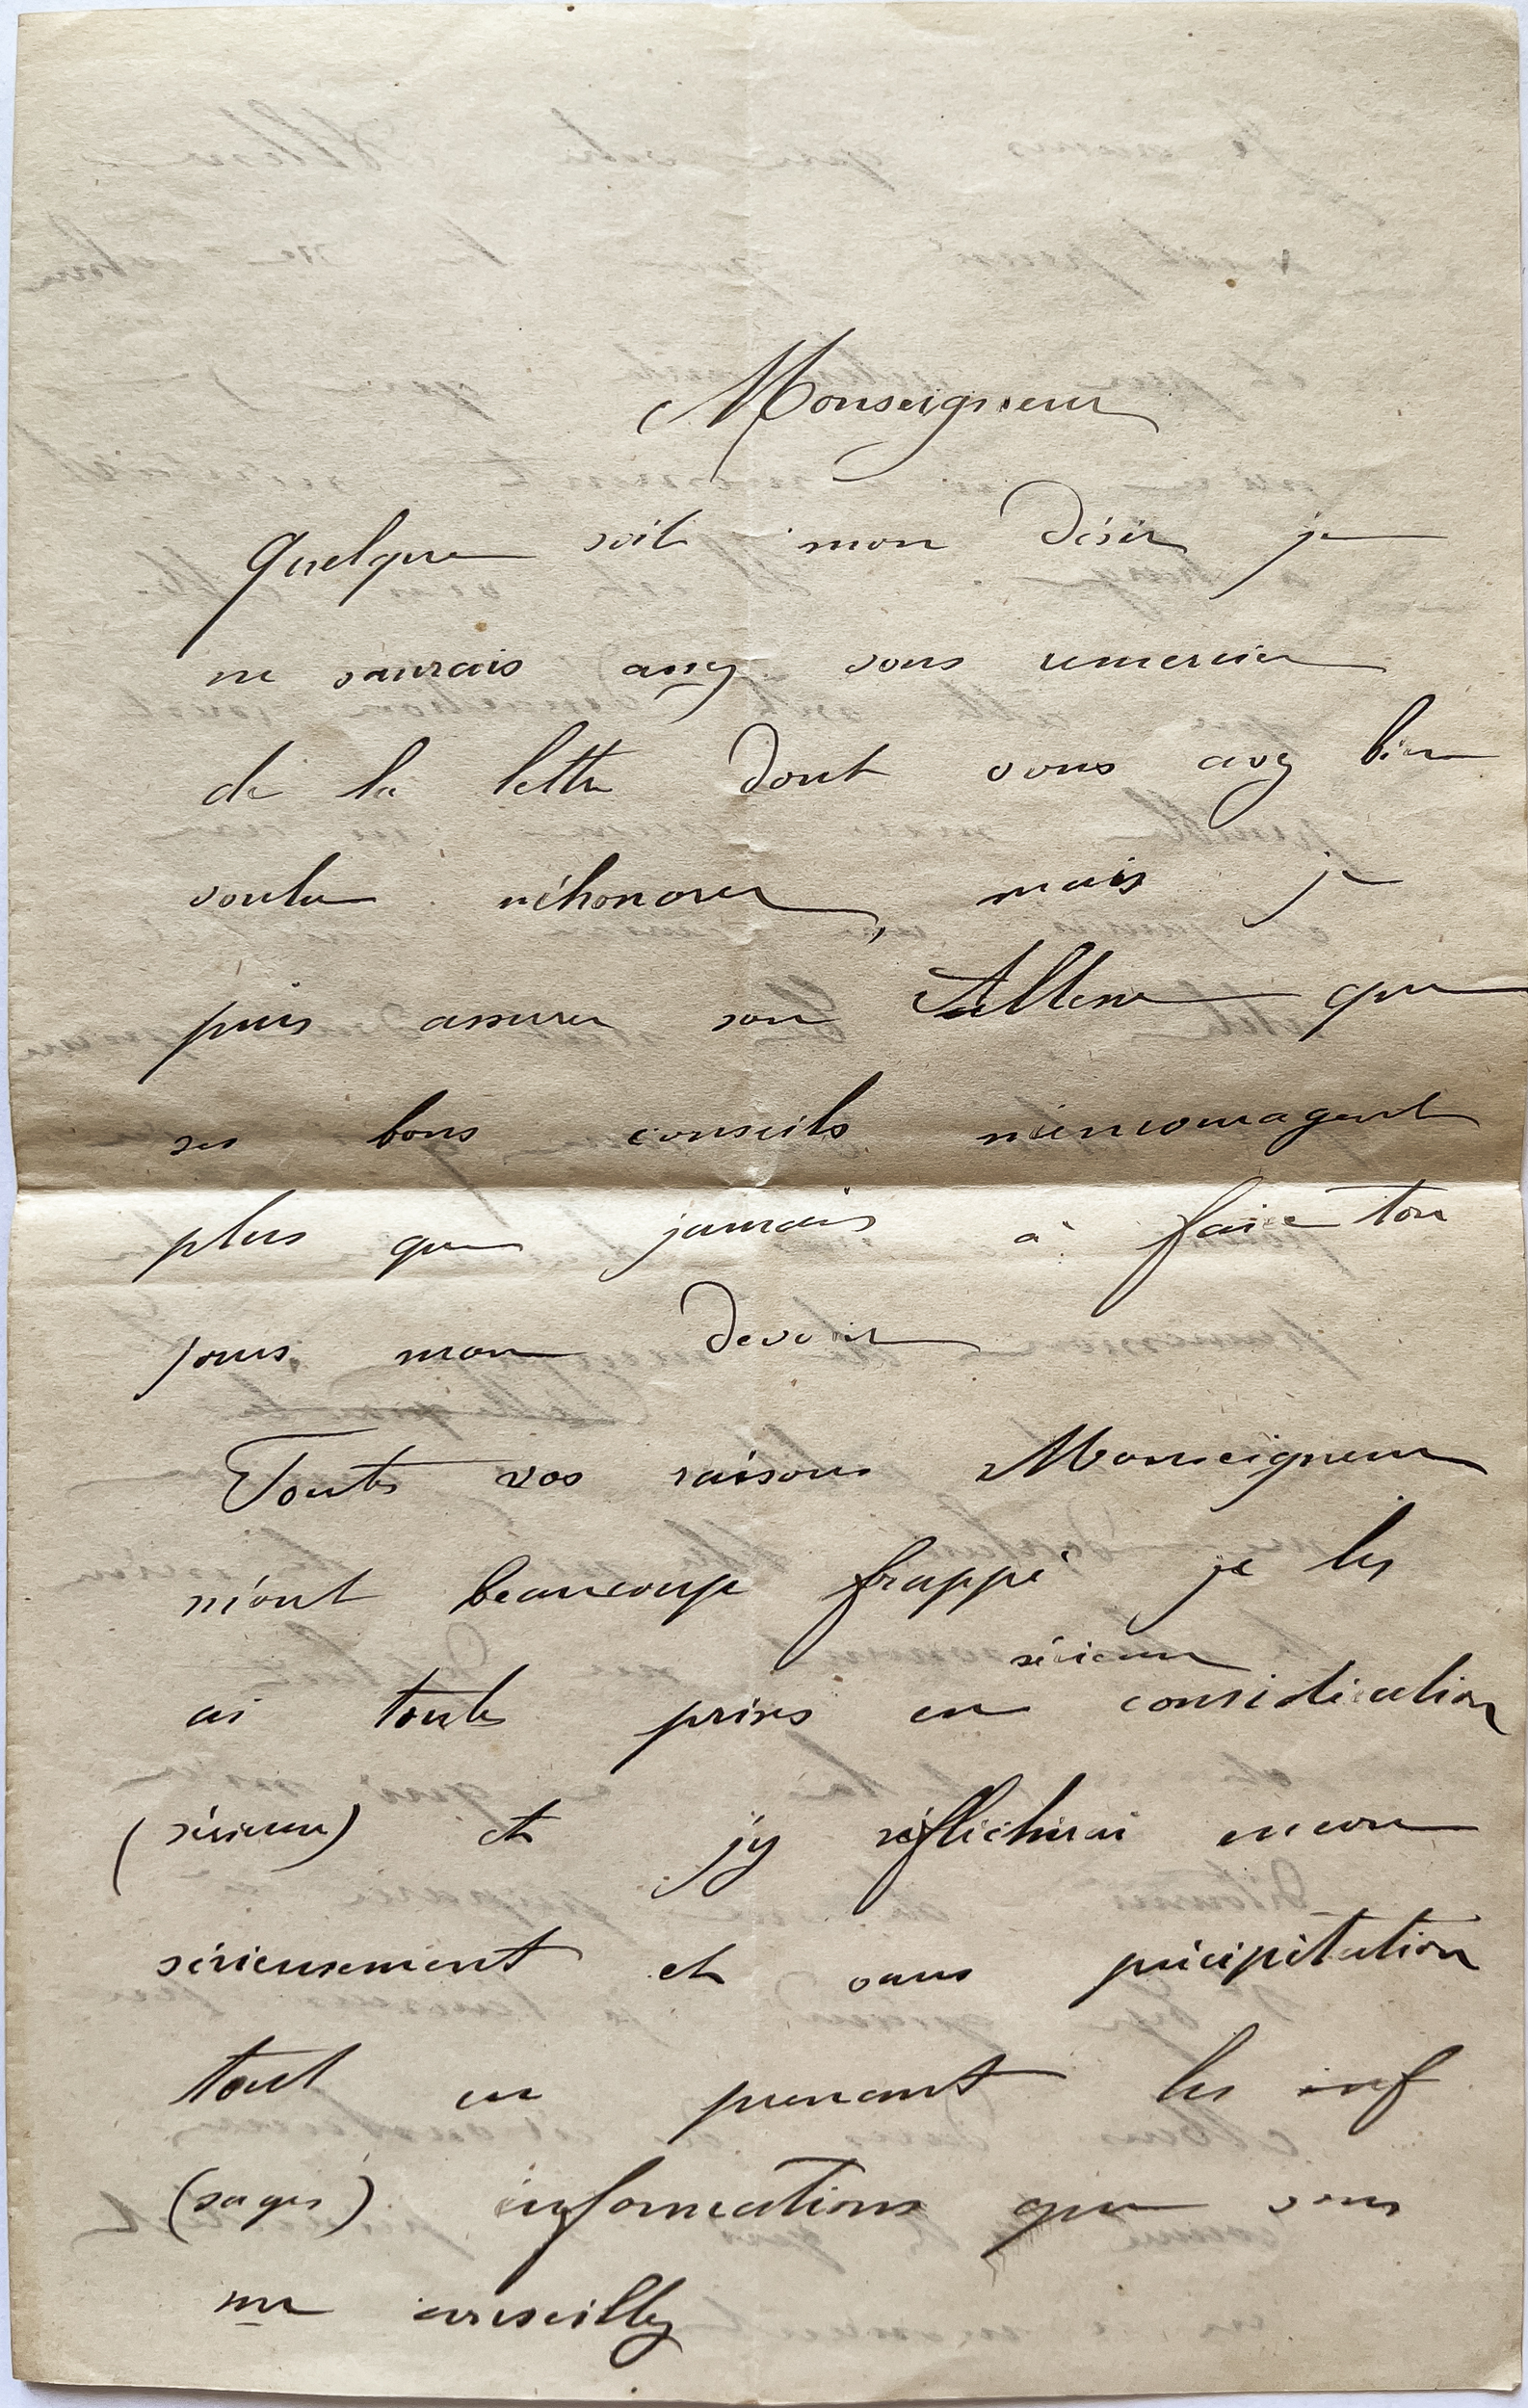 Monseigneur
Quelque soit mon désir je
ne saurais assez vous remercier
de la lettre dont vous avez bien
voulu m'honorer, mais je
puis assurer son Altesse que
ses bons conseils m'encouragent
plus que jamais à faire tou
jours mon devoir
Toutes vos raisons Monseigneur
m'ont beaucoup frappé je les
sérieuse
ai toutes prises en considération
(sérieuse) et j'y réfléchirai encore
sérieusement et sans précipitation
tout en prenant les inf
(sages) informations que vous
me conseillez